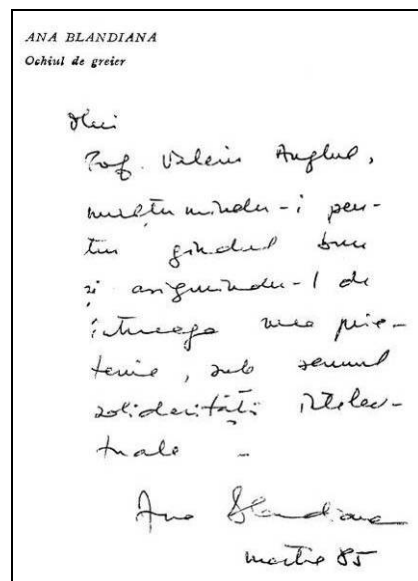 ANA BLANDIANA
Ochiul de greier
Dlui
Prof. Valeriu Anghel,
mulțumindu-i pen-
tru gîndul bun
și asigurîndu-l de
întreaga mea prie-
tenie, sub semnul
solidarității intelec-
tuale -
Ana Blandiana
martie 85